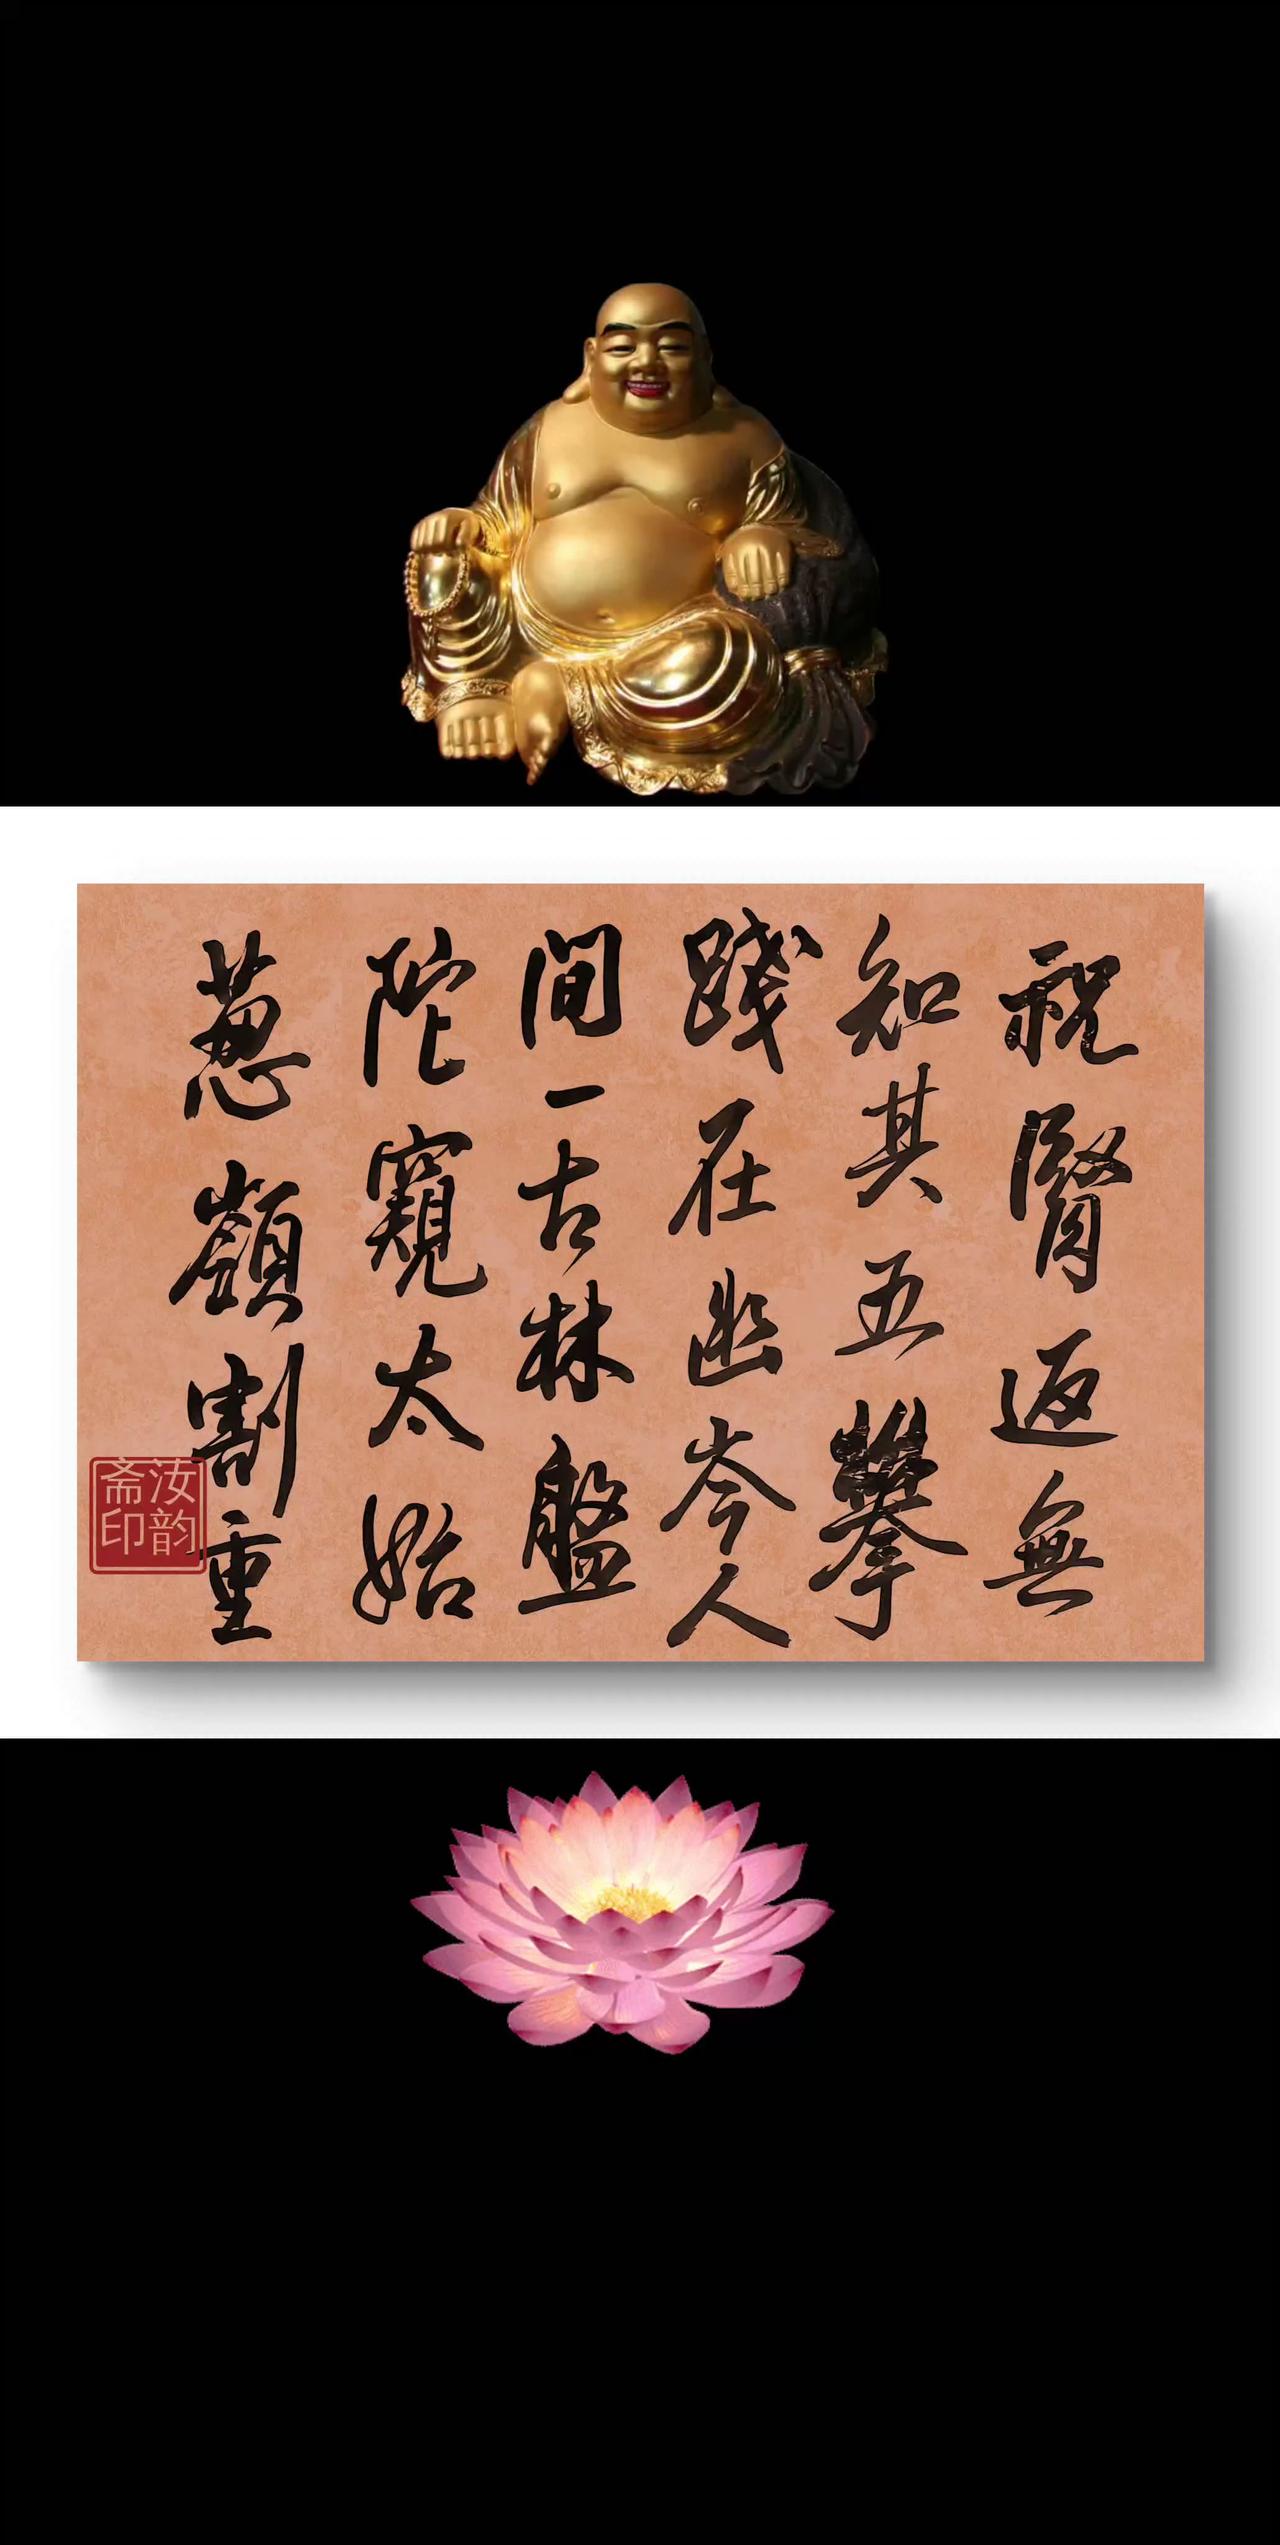 祝腎返無
知其五攀
践在幽岑人
間一古林盤
陀窺太始
葱嶺割重
汝韵
斋印